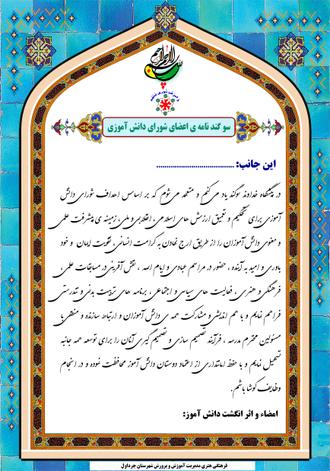 بسم الله الرحمن الرحیم
سوگند نامه ی اعضای شورای دانش آموزی
این جانب: ......................................
در پیشگاه خداوند سوگند یاد می کنم و متعهد می شوم که بر اساس اهداف شورای دانش
آموزی برای تحکیم و تعمیق ارزش های اسلامی، انقلابی و ملی، زمینه ی پیشرفت علمی
و معنوی دانش آموزان را از طریق ارج نهادن به کرامت انسانی، تقویت ایمان و خود
باوری و امید به آینده، حضور در مراسم عبادی و ایام الله، نقش آفرینی در مسابقات علمی،
فرهنگی و هنری، فعالیت های سیاسی و اجتماعی، برنامه های تربیت بدنی و تندرستی
فراهم نمایم و با هم اندیشی و مشارکت همه ی دانش آموزان و ارتباط سازنده و منطقی با
مسئولین محترم مدرسه، فرآیند تصمیم سازی و تصمیم گیری آنان را برای توسعه همه جانبه
تسهیل نمایم و با حفظ امانتداری از اعتماد دوستان دانش آموز محافظت نموده و در انجام
وظایف کوشا باشم.
امضاء و اثر انگشت دانش آموز:
فرهنگی هنری مدیریت آموزش و پرورش شهرستان چرداول